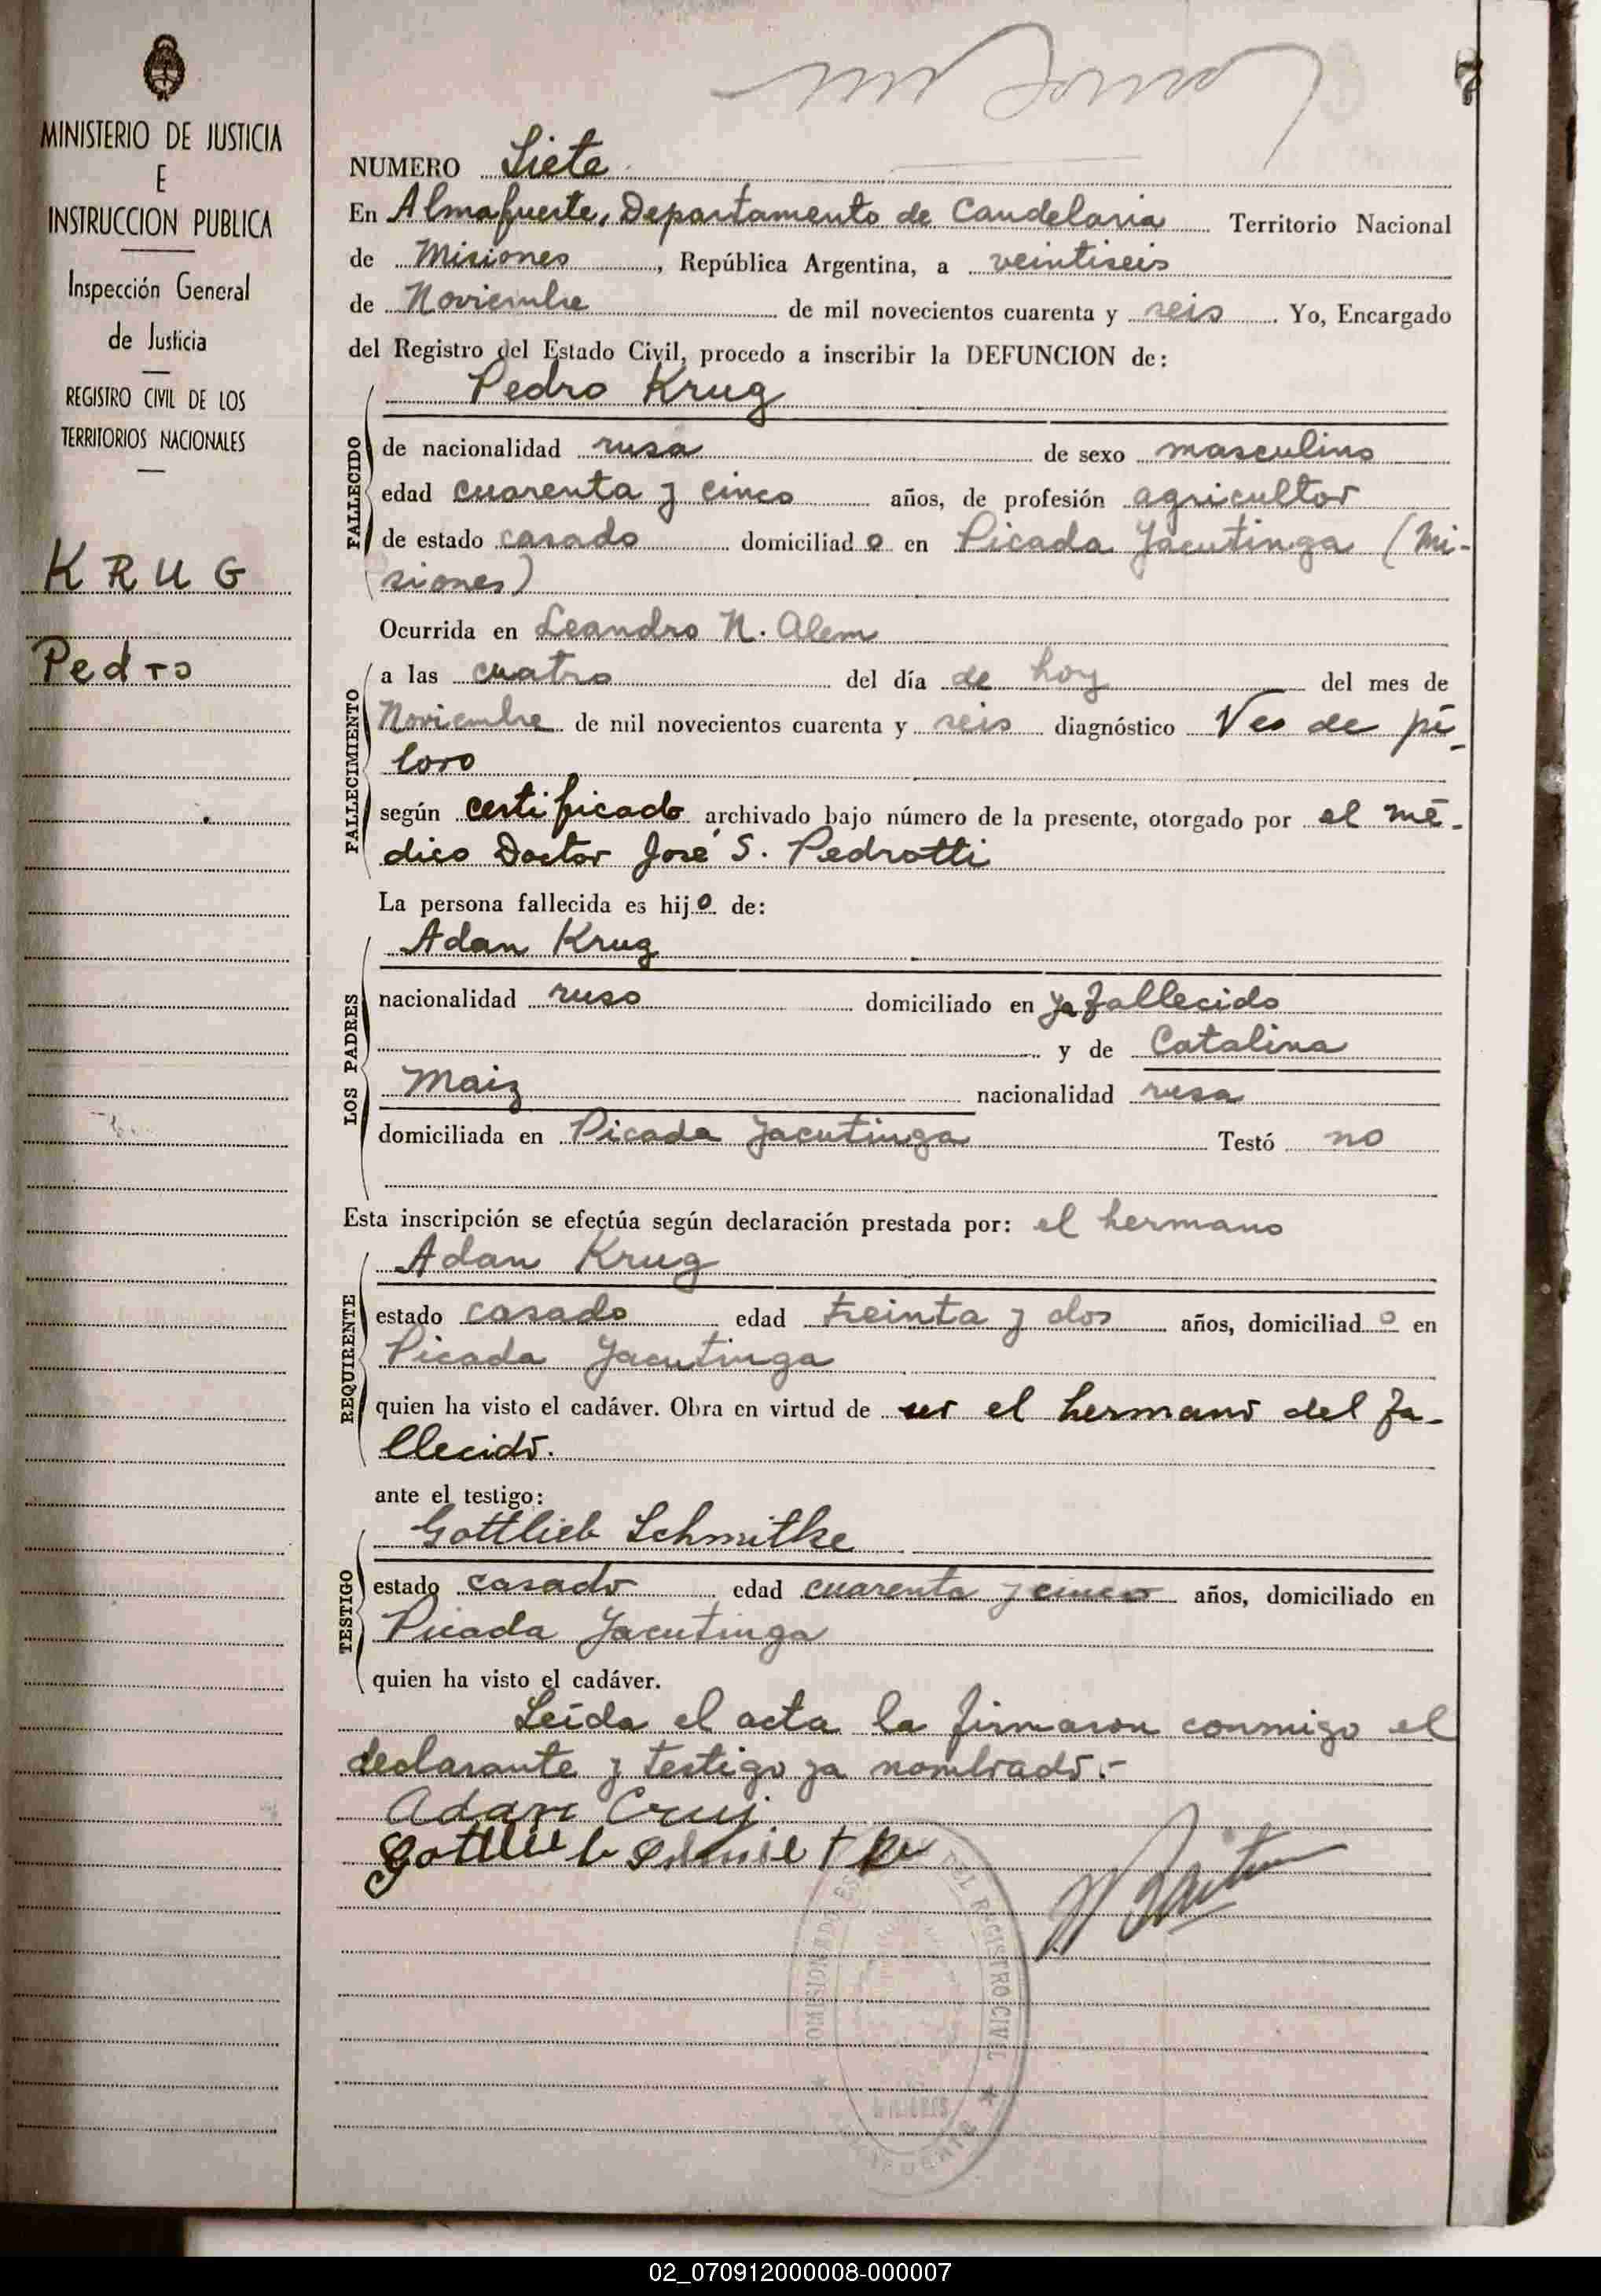 MINISTERIO DE JUSTICIA
E
INSTRUCCION PUBLICA
Inspección General
de Justicia
REGISTRO CIVIL DE LOS
TERRITORIOS NACIONALES
KRUG
Pedro
NUMERO Siete
En Almafuerte, Departamento de Candelaria Territorio Nacional
de Misiones, República Argentina, a veintiseis
de Noviembre de mil novecientos cuarenta y seis. Yo, Encargado
del Registro del Estado Civil, procedo a inscribir la DEFUNCION de:
FALLECIDO
Pedro Krug
de nacionalidad rusa de sexo masculino
edad cuarenta y cinco años, de profesión agricultor
de estado casado domiciliado en Picada Yacutinga (Mi-
siones)
Ocurrida en Leandro N. Alem
FALLECIMIENTO
a las cuatro del día de hoy del mes de
Noviembre de mil novecientos cuarenta y seis diagnóstico de pí-
loro
según certificado archivado bajo número de la presente, otorgado por el mé-
dico Doctor José S. Pedrotti
La persona fallecida es hijo de:
LOS PADRES
Adan Krug
nacionalidad ruso domiciliado en ya fallecido
y de Catalina
Maiz nacionalidad rusa
domiciliada en Picada Yacutinga Testó no
Esta inscripción se efectúa según declaración prestada por: el hermano
REQUIRENTE
Adan Krug
estado casado edad treinta y dos años, domiciliado en
Picada Yacutinga
quien ha visto el cadáver. Obra en virtud de ser el hermano del fa-
llecido.
ante el testigo:
TESTIGO
Gottlieb Schmitke
estado casado, edad cuarenta y cinco años, domiciliado en
Picada Yacutinga
quien ha visto el cadáver.
Leída el acta la firmaron conmigo el
declarante y testigo ya nombrado.-
Adan Cruj
Gottlieb
DEL REGISTRO CIVIL
02_070912000008-000007